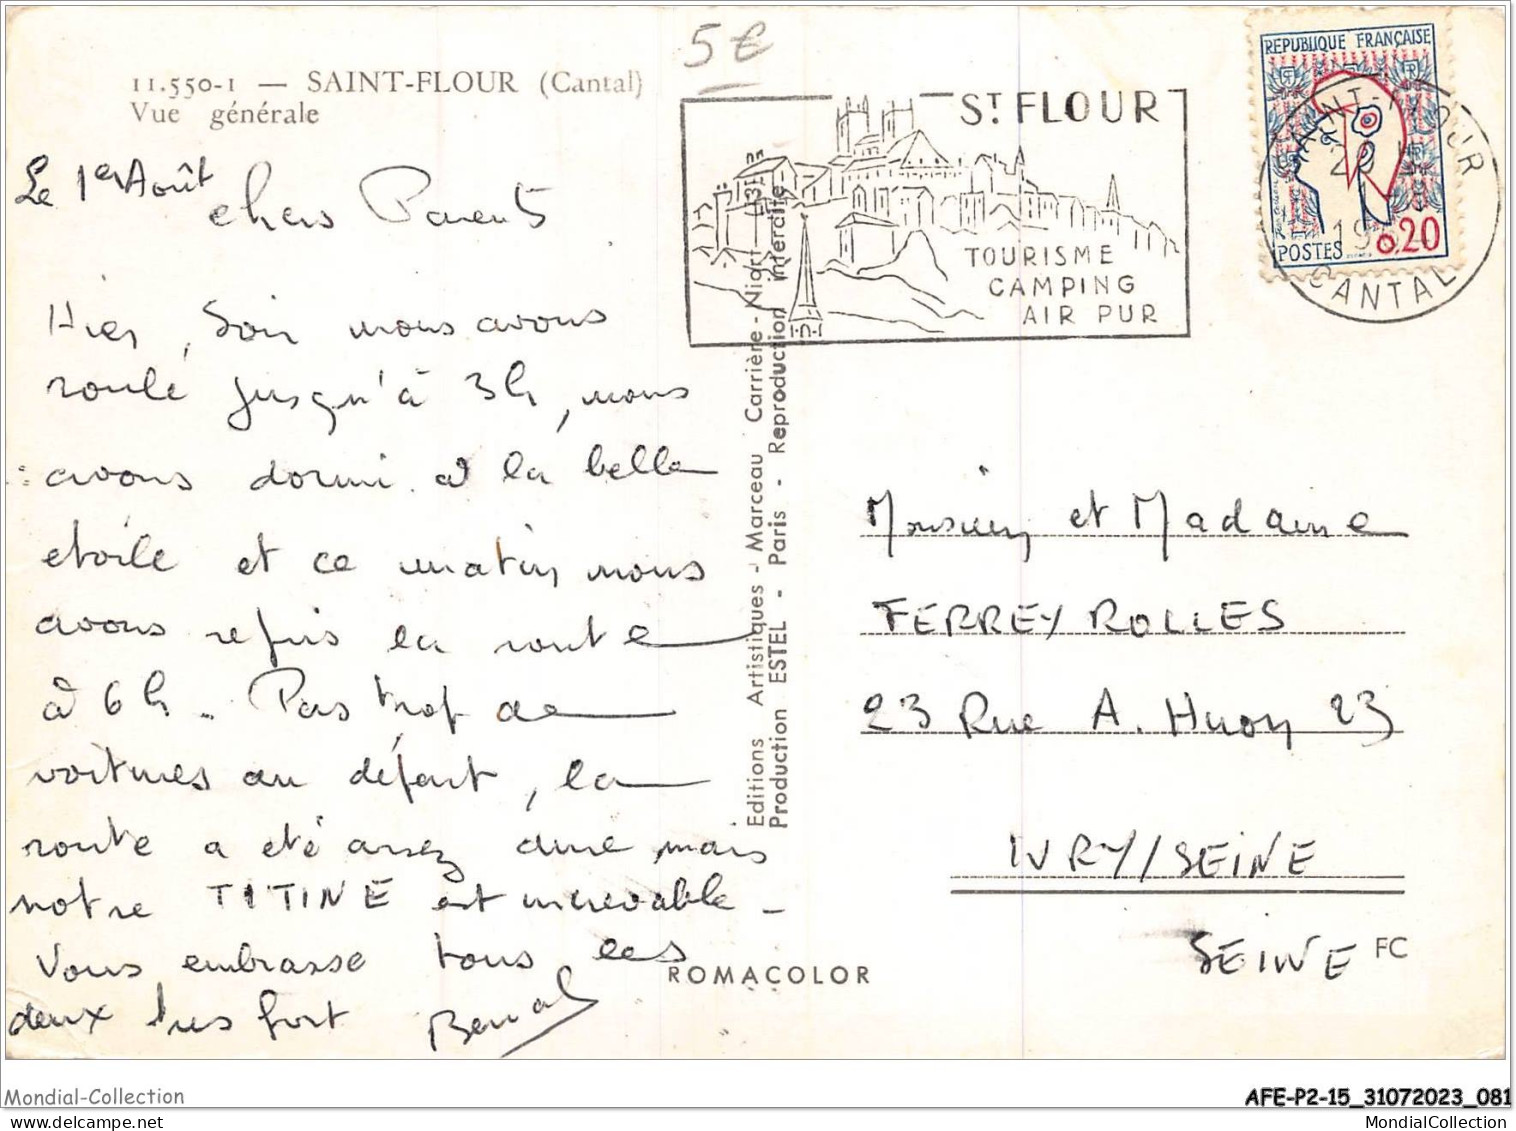 5€
11.550-1 — SAINT-FLOUR (Cantal)
Vue générale
Le 1er Août
chers Parents
Hier, soir nous avons
roulé jusqu'à 3h, nous
avons dormi à la belle
etoile et ce matin nous
avons repris la route
à 6h. Pas trop de
voitures au départ, la
route a été assez dure, mais
notre TITINE est increvable -
Vous embrasse tous les
deux très fort
Editions Artistiques - Marceau Carrière - Niort
Production ESTEL - Paris - Reproduction interdite
ROMACOLOR
ST FLOUR
TOURISME
CAMPING
AIR PUR
REPUBLIQUE FRANÇAISE
POSTES 0,20
SAINT-FLOUR
CANTAL
Monsieur et Madame
FERREY ROLLES
23 Rue A. Huon 23
IVRY/SEINE
SEINE
FC
Mondial-Collection
mondialcollection.delcampe.net
AFE-P2-15_31072023_081
MondialCollection